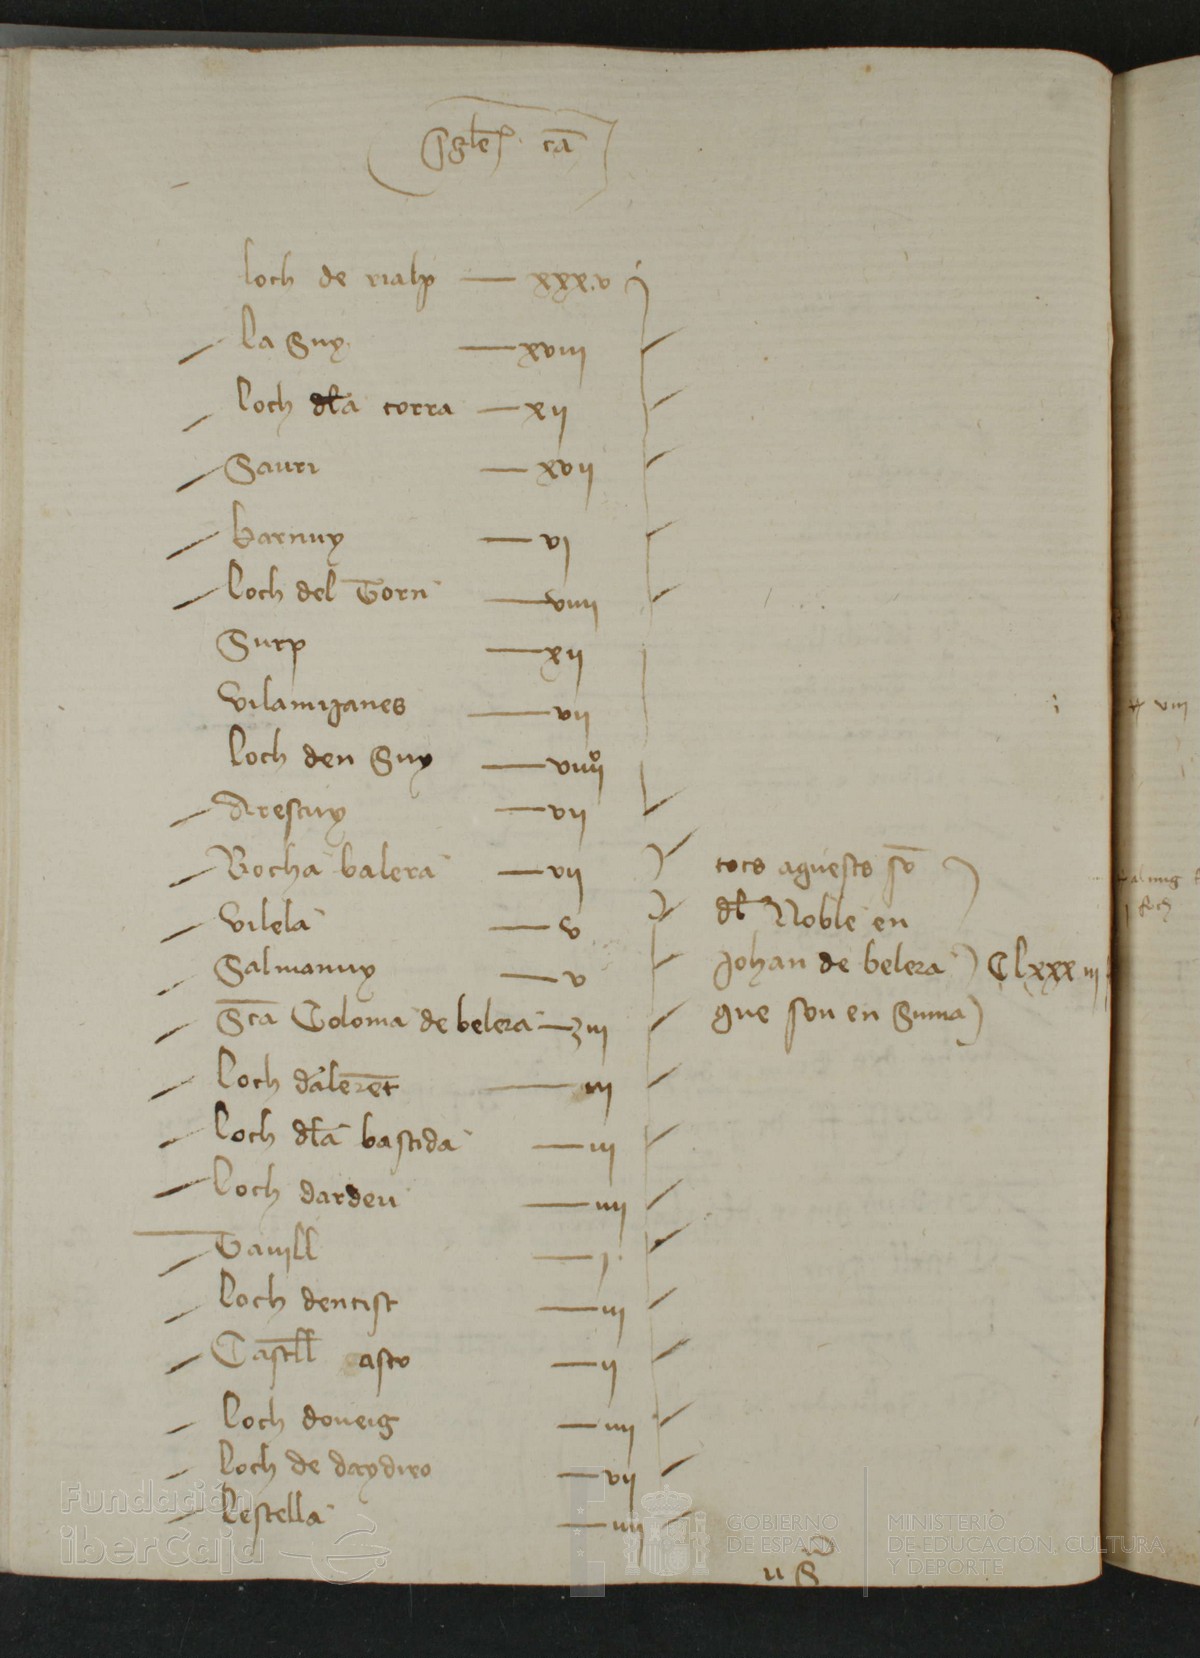 loch de rialp — xxxv
la Guy — xviii
loch dla torra — xii
Sauri — xvii
bernuy — vi
loch del Torn — viiii
Surp — xii
Vilamijanes — vii
loch den Guy — viiii
Arestuy — vii
Rocha balera — vii
Vilela — v
Salmanuy — v
Sta Coloma de belera — iii
loch
loch dla bastida — iii
loch dardeu — iiii
Cavill — j
loch dentist — iii
Castell asto — ii
loch doveig — iiii
loch de — vii
lestella — iiii
tots aquests so
dl Noble en
Johan de belera
que son en Suma
Clxxxiii
viii
Fundación
iberCaja
GOBIERNO
DE ESPAÑA
MINISTERIO
DE EDUCACIÓN, CULTURA
Y DEPORTE